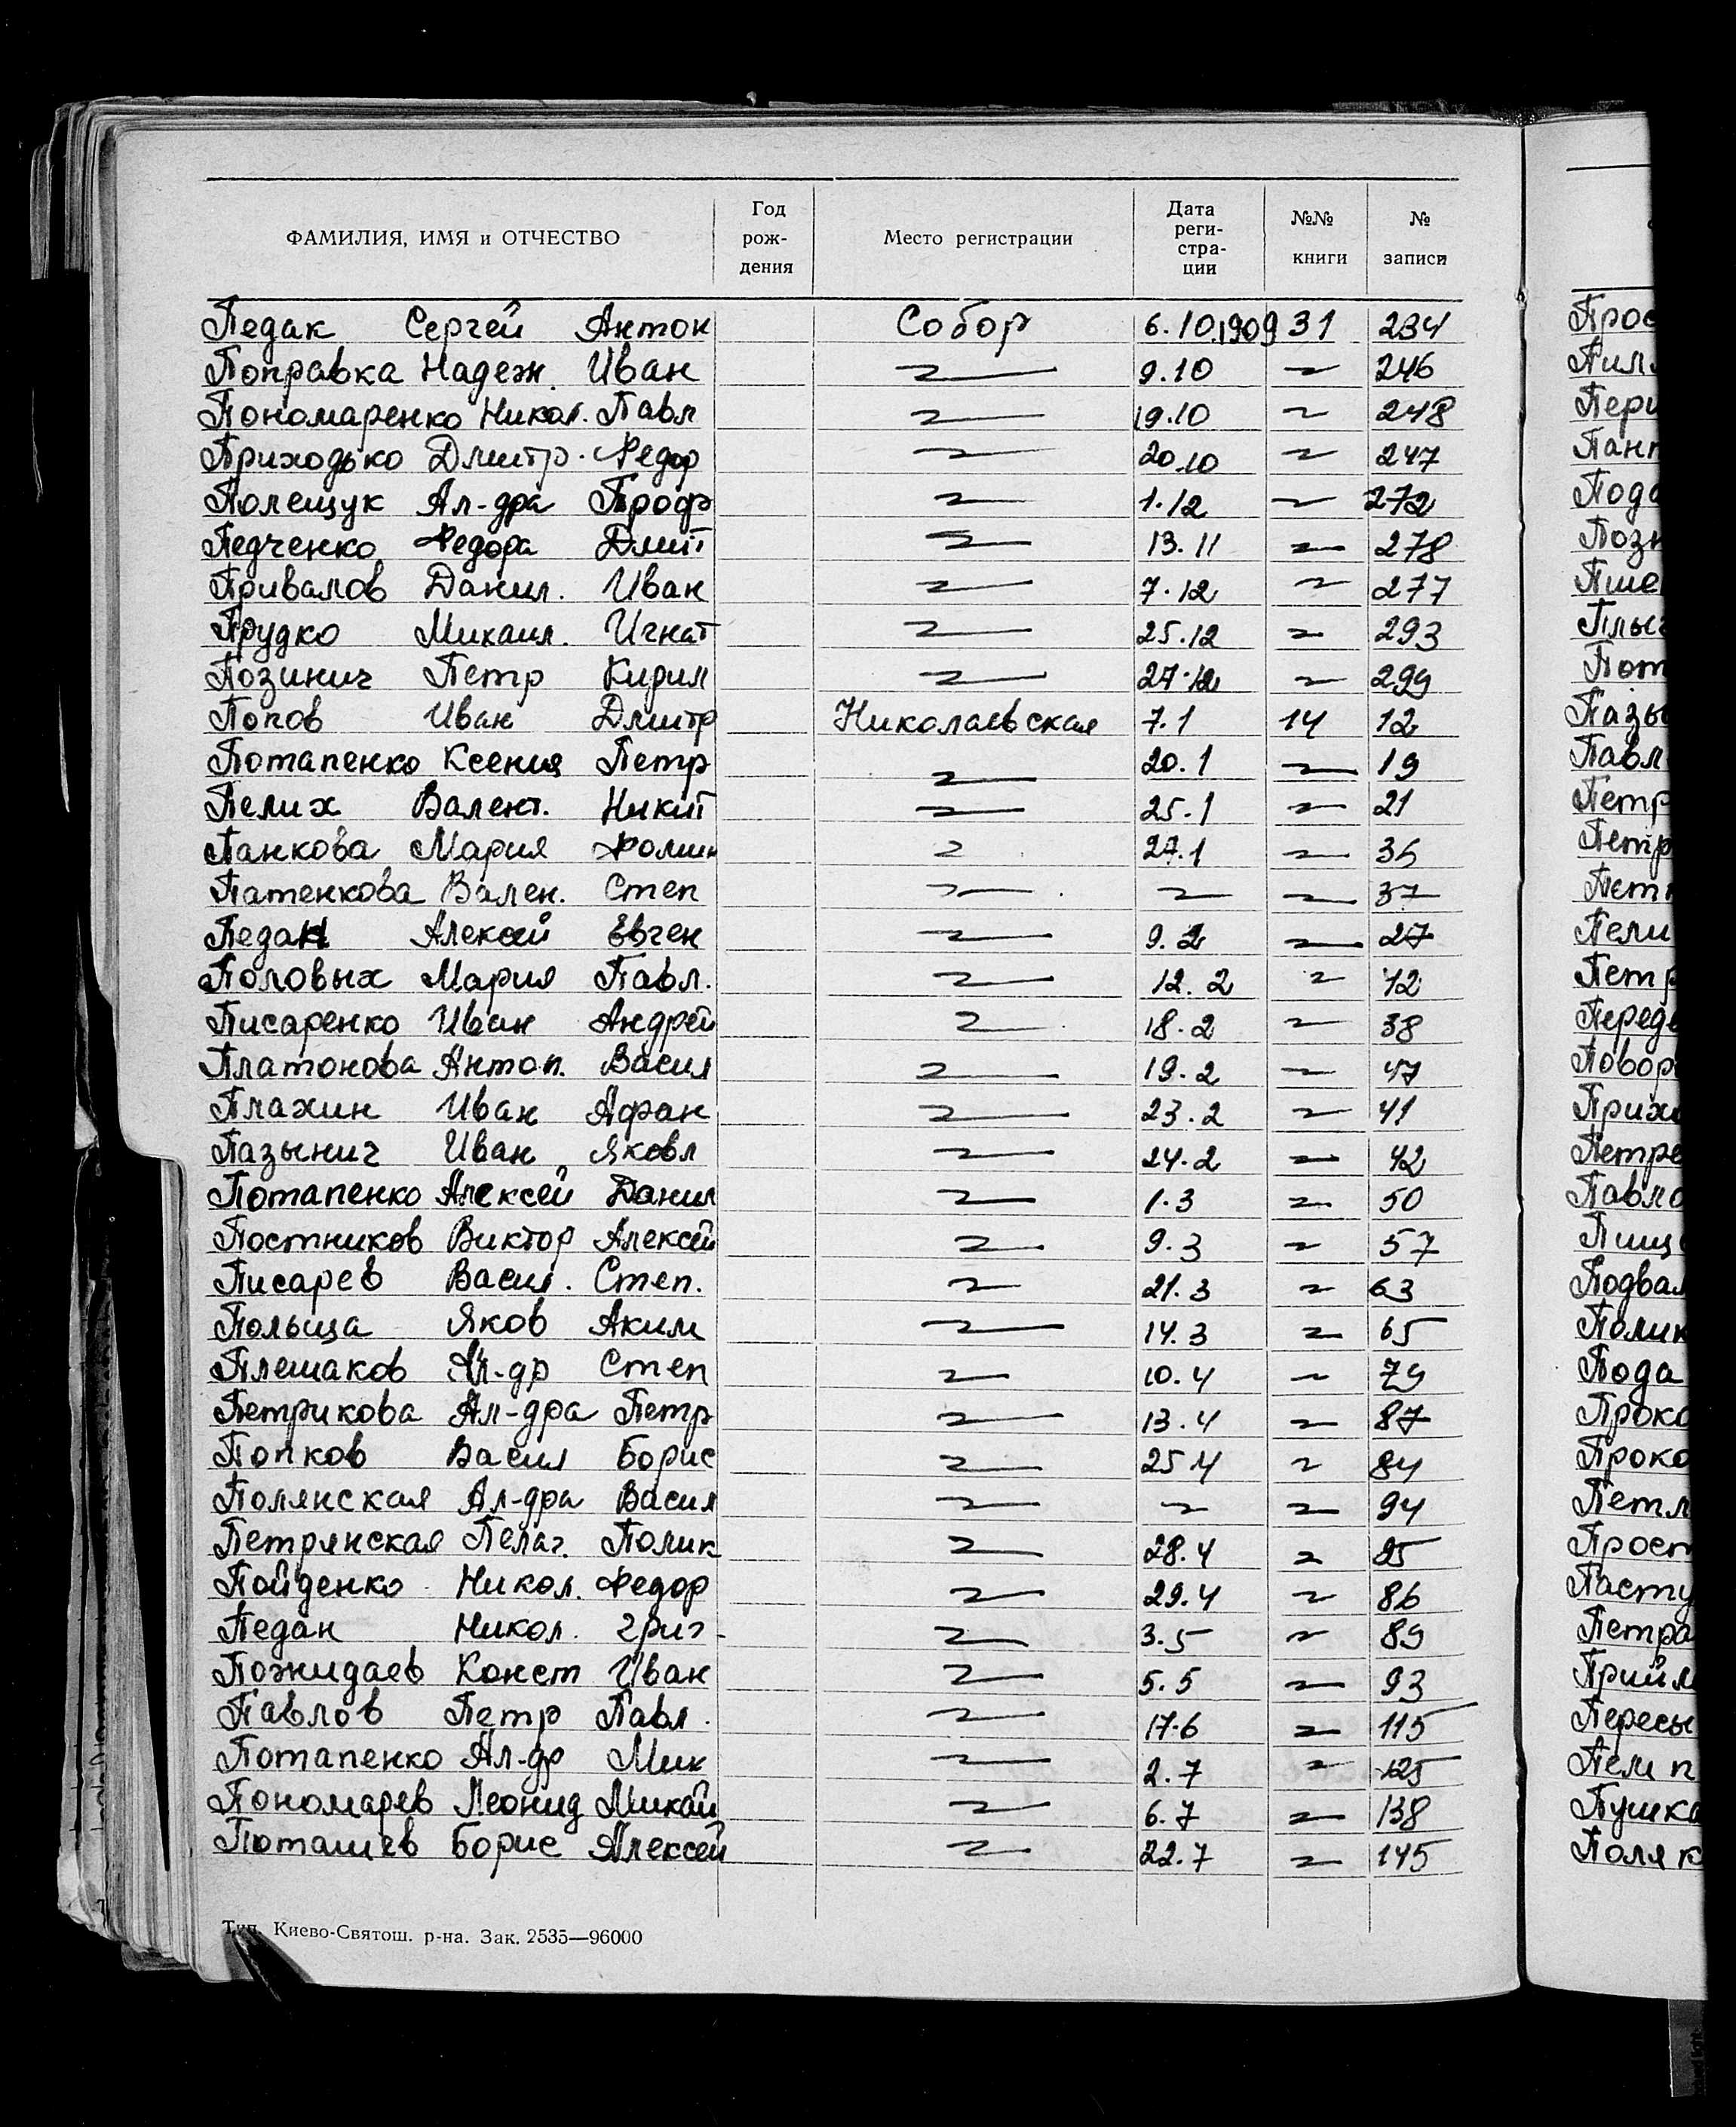 ФАМИЛИЯ, ИМЯ и ОТЧЕСТВО Год рождения Место регистрации Дата регистрации №№ книги № записи
Педак Сергей Антон Собор 6.10.1909 31 234
Поправка Надеж. Иван 9.10 246
Пономаренко Никол. Павл 19.10 248
Приходько Дмитр. Федор 20.10 247
Полещук Ал-дра Троф 1.12 272
Педченко Федора Дмит 13.11 278
Привалов Данил. Иван 7.12 277
Прудко Михаил. Игнат 25.12 293
Позинич Петр Кирил 27.12 299
Попов Иван Дмитр Николаевская 7.1 14 12
Потапенко Ксения Петр 20.1 19
Пелих Валент. Никит 25.1 21
Панкова Мария Фомин 27.1 36
Патенкова Вален. Степ 37
Педан Алексей Евген 9.2 27
Половых Мария Павл. 12.2 42
Писаренко Иван Андрей 18.2 38
Платонова Антон. Васил 19.2 47
Плахин Иван Афан 23.2 41
Пазынич Иван Яковл 24.2 42
Потапенко Алексей Данил 1.3 50
Постников Виктор Алексей 9.3 57
Писарев Васил. Степ. 21.3 63
Польща Яков Аким 14.3 65
Плешаков Ал-др Степ 10.4 79
Петрикова Ал-дра Петр 13.4 87
Попков Васил Борис 25.4 84
Полянская Ал-дра Васил 94
Петрянская Пелаг. Полик 28.4
Пойденко Никол. Федор 29.4 86
Педан Никол. Григ 3.5 89
Пожидаев Конст Иван 5.5 93
Павлов Петр Павл. 17.6 115
Потапенко Ал-др Мих 2.7 125
Пономарев Леонид Михай 6.7 138
Поташев Борис Алексей 22.7 145
Тип. Киево-Святош. р-на. Зак. 2535—96000